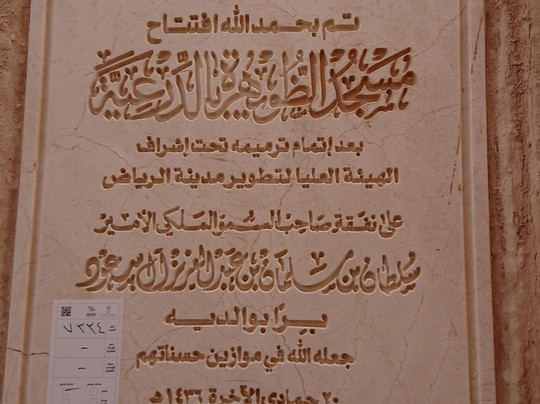 تم بحمد الله افتتاح
مسجد الطويهرة بالدرعية
بعد إتمام ترميمه تحت إشراف
الهيئة العليا لتطوير مدينة الرياض
على نفقة صاحب السمو الملكي الأمير
سلطان بن سلمان بن عبدالعزيز آل سعود
برا بوالديه
جعله الله في موازين حسناتهم
٢٠ جمادى الآخرة ١٤٣٦هـ
٧٣٢٤